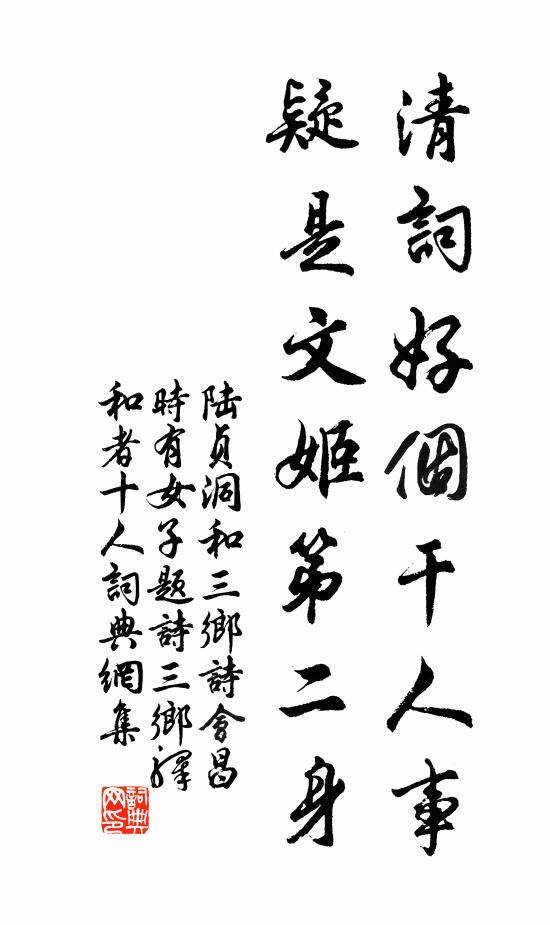 清詞好個干人事
疑是文姬第二身
陸貞洞和三鄉詩會昌
時有女子題詩三鄉驛
和者十人詞典網集
詞典网印